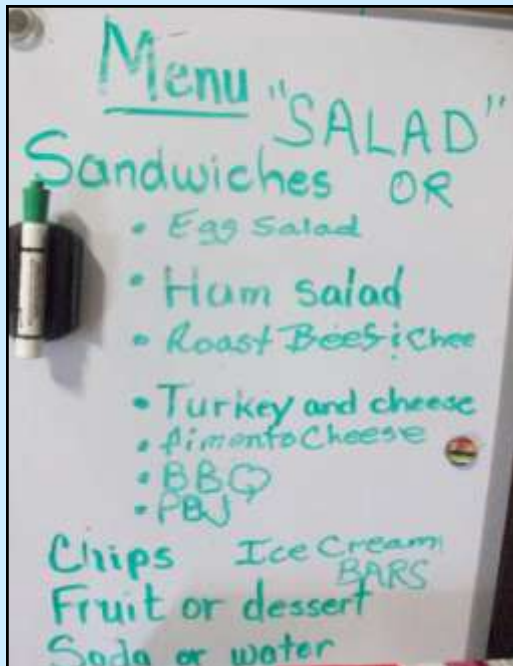 Menu
"SALAD"
Sandwiches OR
• Egg Salad
• Ham salad
• Roast Beef & Chee
• Turkey and cheese
• Pimento Cheese
• BBQ
• PBJ
Chips Ice Cream
BARS
Fruit or dessert
Soda or water